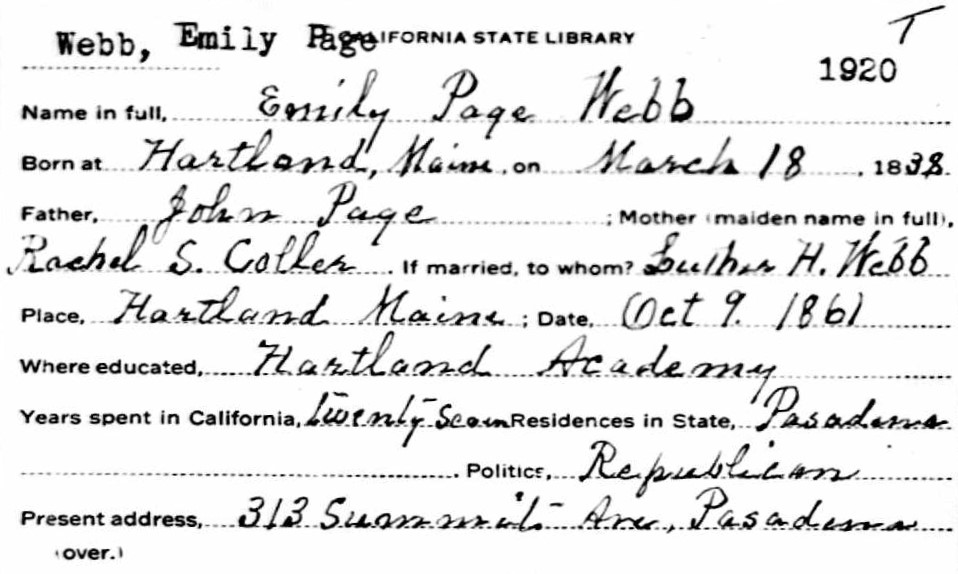 Webb, Emily Page CALIFORNIA STATE LIBRARY T
1920
Name in full, Emily Page Webb
Born at Hartland, Maine, on March 18, 1838.
Father, John Page; Mother (maiden name in full),
Rachel S. Coller. If married, to whom? Luther H. Webb
Place, Hartland Maine; Date, Oct 9. 1861
Where educated, Hartland Academy
Years spent in California, twenty-seven Residences in State, Pasadena
. Politics, Republican
Present address, 313 Summit Ave., Pasadena
(over.)